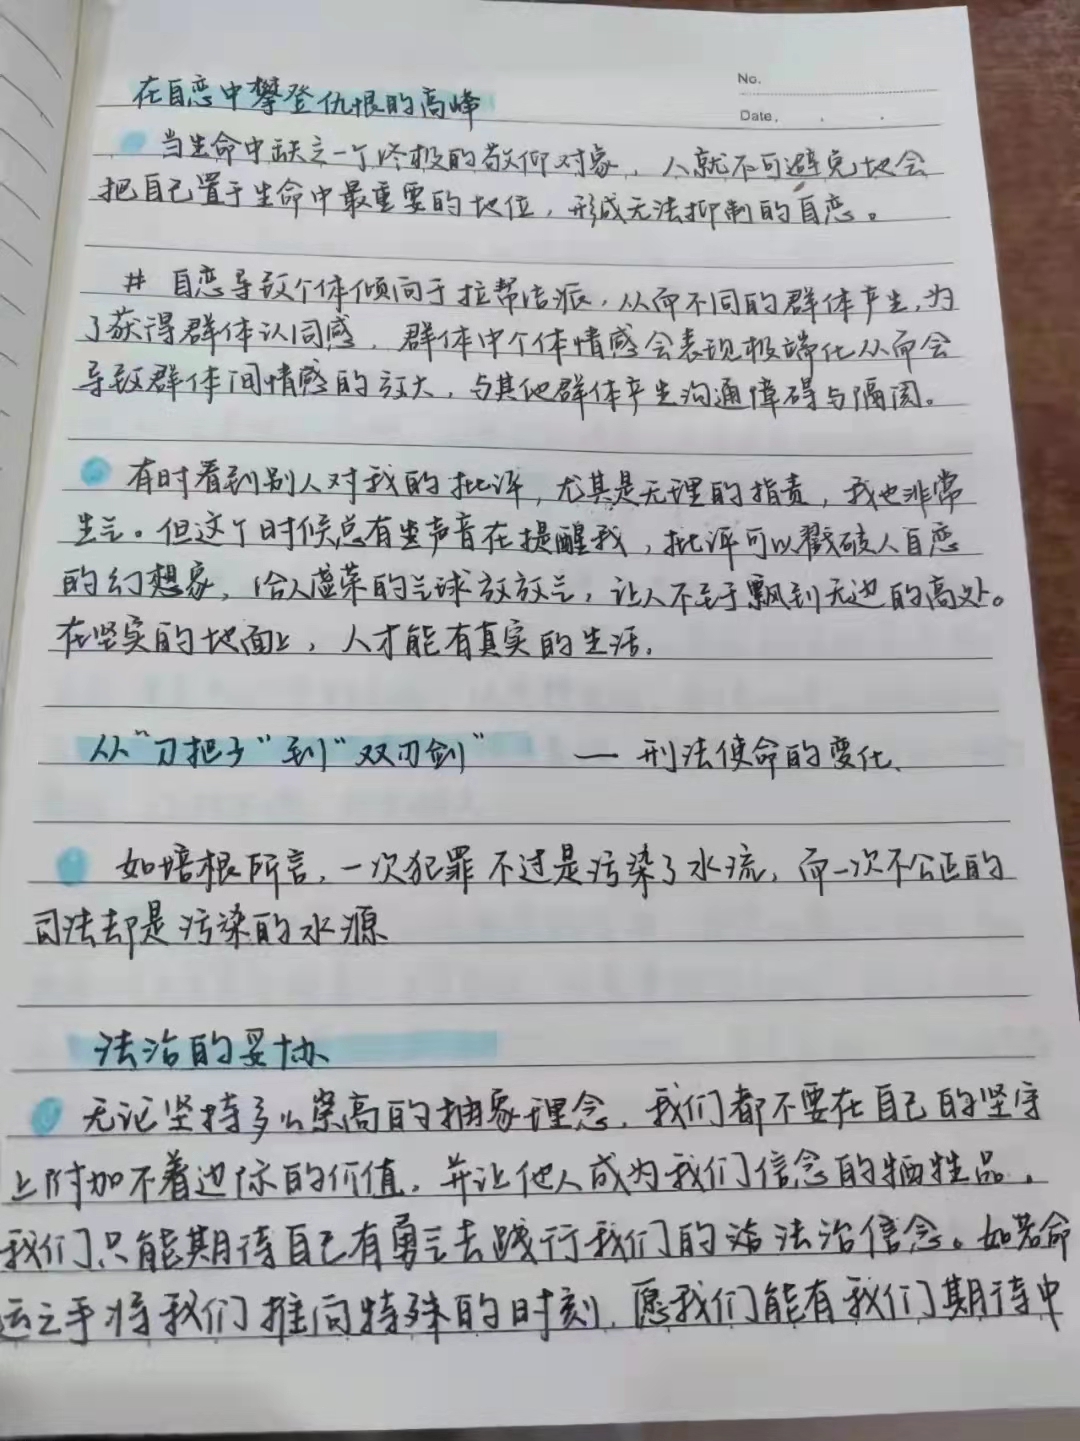 No.
Date.
在自恋中攀登仇恨的高峰
当生命中缺乏一个终极的敬仰对象，人就不可避免地会
把自己置于生命中最重要的地位，形成无法抑制的自恋。
# 自恋导致个体倾向于拉帮结派，从而不同的群体产生，为
了获得群体认同感，群体中个体情感会表现极端化从而会
导致群体间情感的放大，与其他群体产生沟通障碍与隔阂。
有时看到别人对我的批评，尤其是无理的指责，我也非常
生气。但这个时候总有些声音在提醒我，批评可以戳破人自恋
的幻想象，给人虚荣的气球放放气，让人不至于飘到无边的高处。
在坚实的地面上，人才能有真实的生活。
从“刀把子”到“双刃剑” — 刑法使命的变化、
如培根所言，一次犯罪不过是污染了水流，而一次不公正的
司法却是污染的水源
法治的妥协
无论坚持多么崇高的抽象理念，我们都不要在自己的坚守
上附加不着边际的价值，并让他人成为我们信念的牺牲品，
我们只能期待自己有勇气去践行我们的法治信念。如若命
运之手将我们推向特殊的时刻，愿我们能有我们期待中